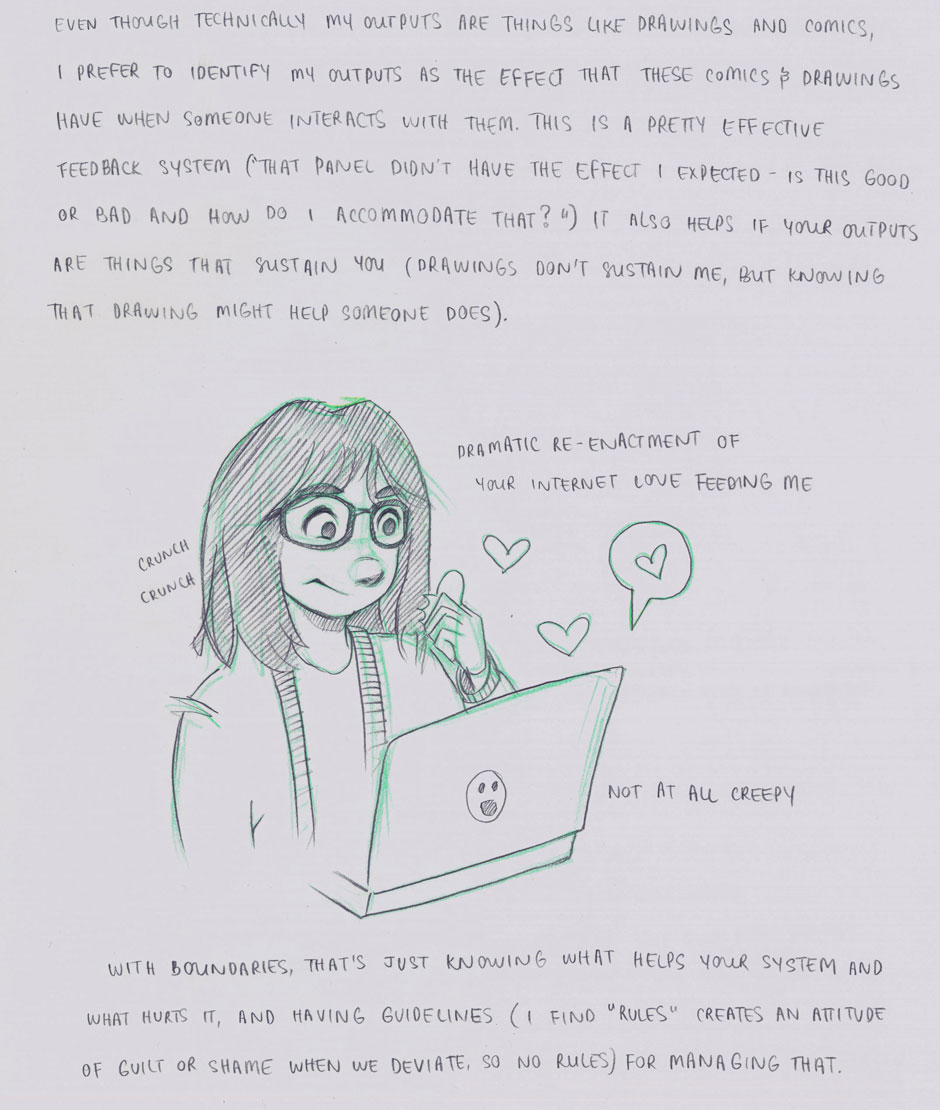 EVEN THOUGH TECHNICALLY MY OUTPUTS ARE THINGS LIKE DRAWINGS AND COMICS,
I PREFER TO IDENTIFY MY OUTPUTS AS THE EFFECT THAT THESE COMICS & DRAWINGS
HAVE WHEN SOMEONE INTERACTS WITH THEM. THIS IS A PRETTY EFFECTIVE
FEEDBACK SYSTEM ("THAT PANEL DIDN'T HAVE THE EFFECT I EXPECTED - IS THIS GOOD
OR BAD AND HOW DO I ACCOMMODATE THAT?") IT ALSO HELPS IF YOUR OUTPUTS
ARE THINGS THAT SUSTAIN YOU (DRAWINGS DON'T SUSTAIN ME, BUT KNOWING
THAT DRAWING MIGHT HELP SOMEONE DOES).
DRAMATIC RE-ENACTMENT OF
YOUR INTERNET LOVE FEEDING ME
CRUNCH
CRUNCH
NOT AT ALL CREEPY
WITH BOUNDARIES, THAT'S JUST KNOWING WHAT HELPS YOUR SYSTEM AND
WHAT HURTS IT, AND HAVING GUIDELINES (I FIND "RULES" CREATES AN ATTITUDE
OF GUILT OR SHAME WHEN WE DEVIATE, SO NO RULES) FOR MANAGING THAT.